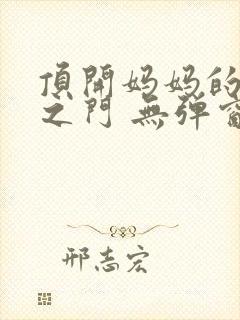 頂開妈妈的
之门 無弹窗
邢志宏